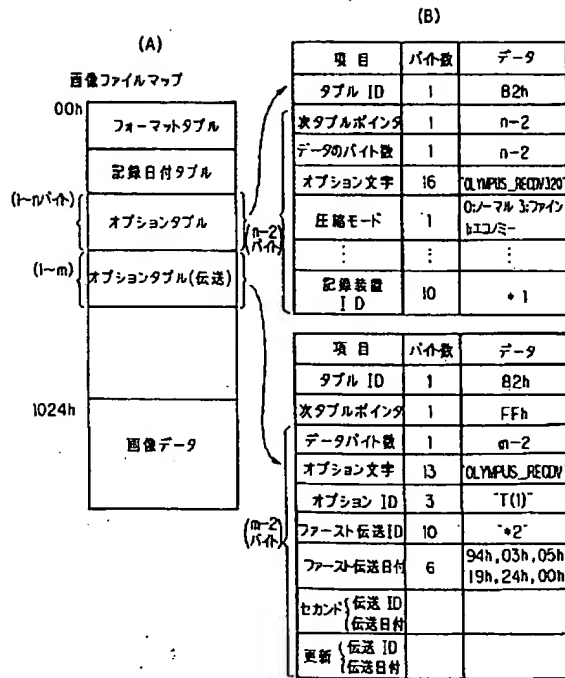 (A)
画像ファイルマップ
00h
フォーマットタブル
記録日付タブル
(1~nバイト)
オプションタブル
(1~m)
オプションタブル(伝送)
1024h
画像データ
(B)
項目 バイト数 データ
タブル ID 1 82h
次タブルポインタ 1 n-2
データのバイト数 1 n-2
オプション文字 16 "OLYMPUS_RECDV320"
圧縮モード 1 0:ノーマル 3:ファイン
1:エコノミー
⋮ ⋮ ⋮
記録装置 ID 10 *1
(n-2)バイト
項目 バイト数 データ
タブル ID 1 82h
次タブルポインタ 1 FFh
データバイト数 1 m-2
オプション文字 13 "OLYMPUS_RECDV
オプション ID 3 "T(1)"
ファースト伝送ID 10 "*2"
ファースト伝送日付 6 94h,03h,05h
19h,24h,00h
セカンド{伝送 ID
伝送日付
更新{伝送 ID
伝送日付
(m-2)バイト